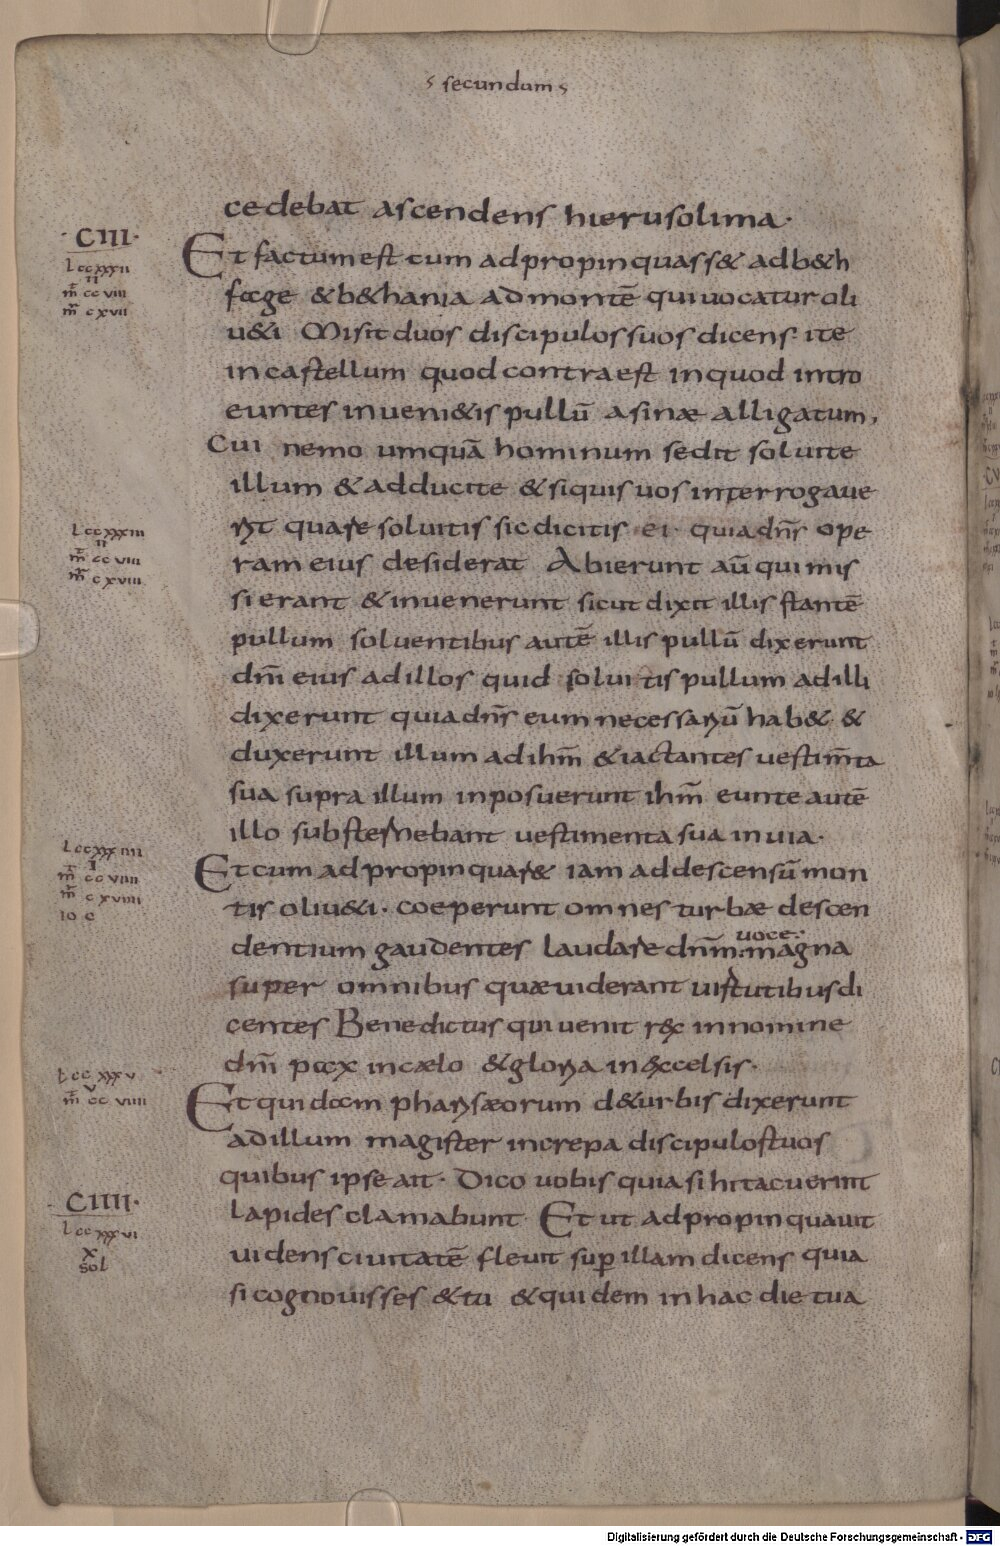 secundum
cedebat ascendens hierusolima·
·CIII·
L ccxxxii
II
m̄ ccviii
m̄r cxvii
Et factum est cum adpropinquass& ad b&h
fage & b&hania ad montē qui uocatur oli
u&i Misit duos discipulos suos dicens· ite
in castellum quod contra est in quod intro
euntes inueni&is pullū asinæ alligatum,
Cui nemo umquā hominum sedit soluite
illum & adducite & siquis uos interrogaue
L ccxxxiii
II
m̄ ccviii
m̄r cxviii
rit quare soluitis sic dicitis ei· quia dn̄s ope
ram eius desiderat Abierunt aū qui mis
si erant & inuenerunt sicut dixit illis stantē
pullum soluentibus autē illis pullū dixerunt
dn̄i eius ad illos quid soluitis pullum ad illi
dixerunt quia dn̄s eum necessariū hab& &
duxerunt illum ad ihm̄ & iactantes uestim̄ta
sua supra illum inposuerunt ihm̄ eunte autē
illo substernebant uestimenta sua in uia·
L ccxxxiiii
I
m̄ ccviiii
m̄r cxviiii
io c
Et cum adpropinquar& iam ad descensū mon
tis oliu&i· coeperunt omnes turbæ descen
dentium gaudentes laudare dn̄m: uoce: magna
super omnibus quæ uiderant uirtutibus di
centes Benedictus qui uenit rex in nomine
dn̄i pax in cælo & gloria in excelsis·
L ccxxxv
V
m̄ ccviiii
Et quidam pharisæorum d& urbis dixerunt
ad illum magister increpa discipulos tuos
quibus ipse ait· Dico uobis quia si hi tacuerint
·CIIII·
L ccxxxvi
X
sol
lapides clamabunt· Et ut adpropinquauit
uidens ciuitatē fleuit sup̄ illam dicens quia
si cognouisses & tu & quidem in hac die tua
Digitalisierung gefördert durch die Deutsche Forschungsgemeinschaft - DFG